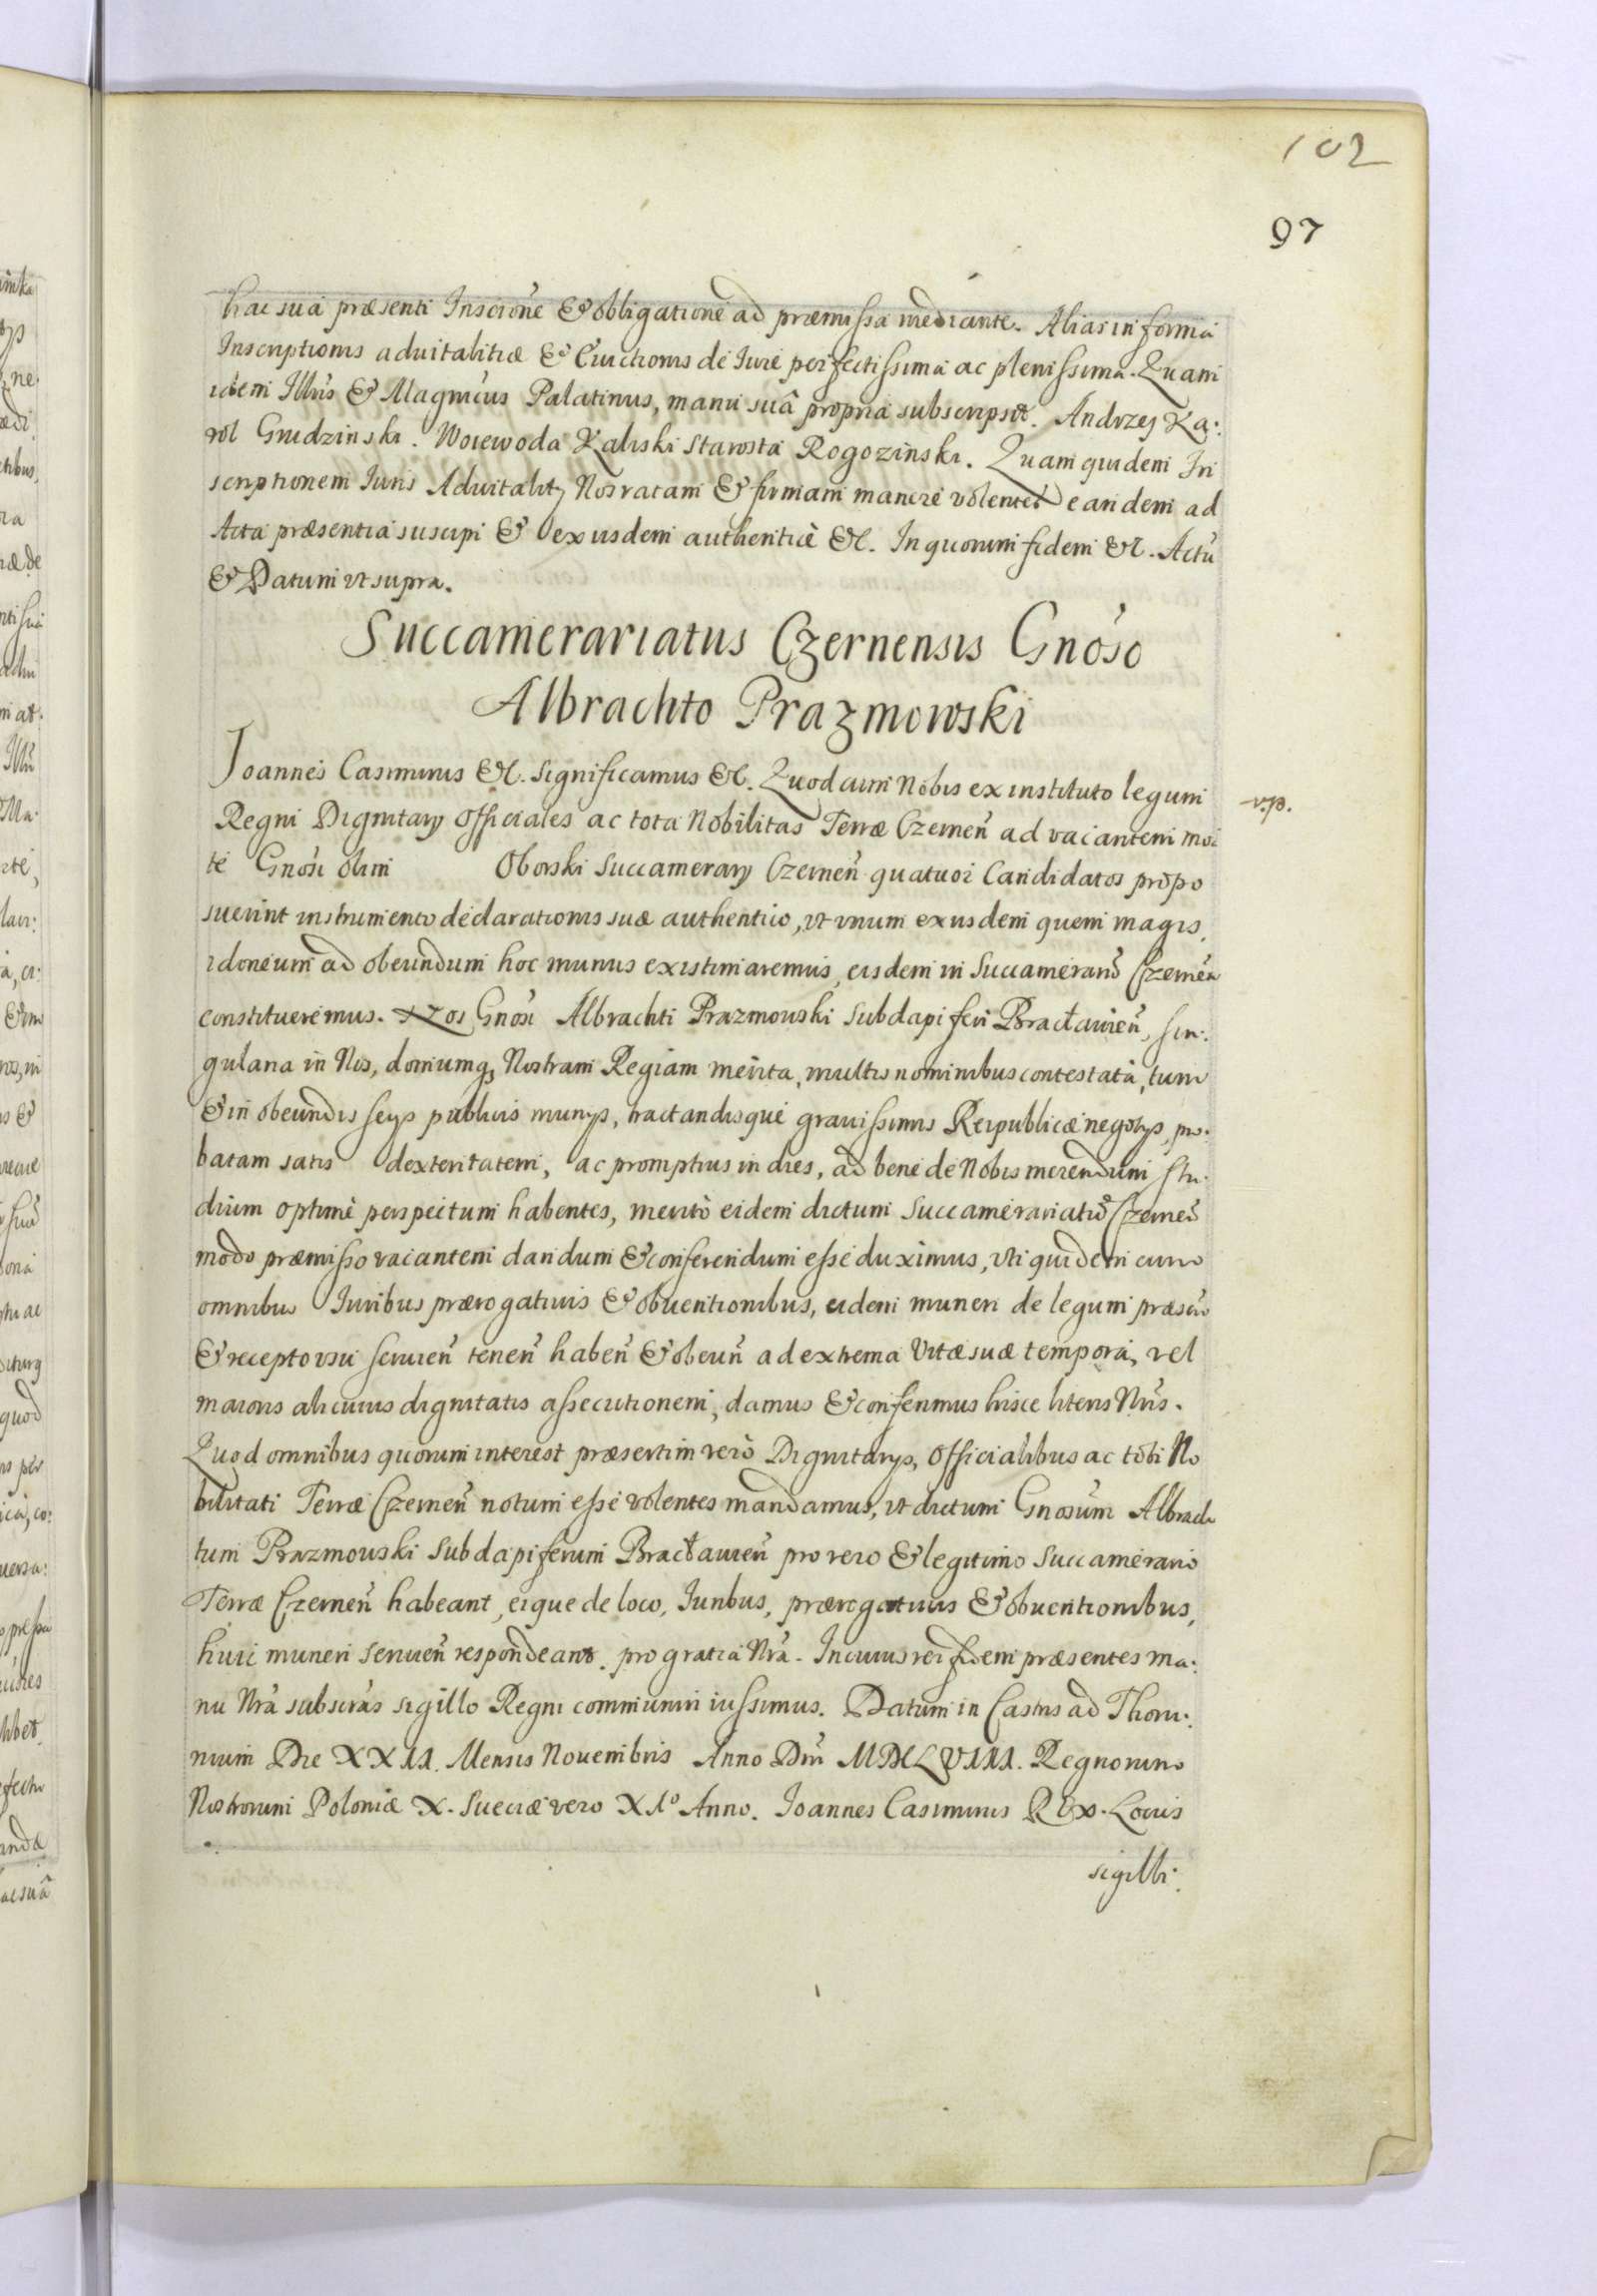 102
97
hac sua præsenti Inscrone & obligatione ad præmissa mediante. Alias in forma
Inscriptionis aduitalitiæ & Euictionis de Iure perfectissima ac plenissima. Quam
idem Illris & Magnicus Palatinus, manu suâ propria subscripsit. Andrzey Ka:
rol Grudzinski. Woiewoda Kaliski Starosta Rogozinski. Quam quidem In
scriptionem Iuris Aduitalitÿ Nos ratam & firmam manere volentes eandem ad
Acta præsentia suscipi & ex iisdem authenticè &c. In quorum fidem &c. Actu
& Datum vt supra.
Succamerariatus Czernensis Gnoso
Albrachto Prazmowski
Joannes Casimirus &c. Significamus &c. Quod cum Nobis ex instituto legum
v.p.
Regni Dignitarÿ Officiales ac tota Nobilitas Terræ Czernen ad vacantem mor
te Gnosi olim Oborski Succamerarÿ Czernen quatuor Candidatos propo
suerint instrumento declarationis suæ authentico, vt vnum ex iisdem quem magis
idoneum ad obeundum hoc munus existimaremus, eisdem in Succamerarm Czernen
constitueremus. Nos Gnosi Albrachti Prazmouski Subdapiferi Bracłauien, sin:
gularia in Nos, domumq, Nostram Regiam merita, multis nominibus contestata, tum
& in obeundis seÿs publicis munÿs, tractandisque grauissimis Reipublicæ negotÿs, pro:
batam satis dexteritatem, ac promptius in dies, ad bene de Nobis merendum stu:
dium optimè perspectum habentes, meritò eidem dictum Succamerariatum Czernen
modo præmisso vacantem dandum & conferendum esse duximus, vti quidem cum
omnibus Iuribus prærogatiuis & obuentionibus, eidem muneri de legum præscro
& recepto vsu seruien tenen haben & obeun ad extrema Vitæ suæ tempora, vel
maioris alicuius dignitatis assecutionem, damus & conferimus hisce literis Nris.
Quod omnibus quorum interest præsertim verò Dignitarÿs, Officialibus ac toti No
bilitati Terræ Czernen notum esse volentes mandamus, vt dictum Gnosum Albrach
tum Prazmouski Subdapiferum Bracłauien pro vero & legitimo Succamerario
Terræ Czernen habeant, eique de loco, Iuribus, prærogatiuis & obuentionibus,
huic muneri seruien respondeant. pro gratia Nra. In cuius rei fidem præsentes ma:
nu Nra subscras sigillo Regni communiri iussimus. Datum in Castris ad Thoru:
nium Die XXII. Mensis Nouembris Anno Dni MDCLVIII. Regnorum
Nostrorum Poloniæ X. Sueciæ vero XIo Anno. Ioannes Casimirus Rex. Locus
sigilli.